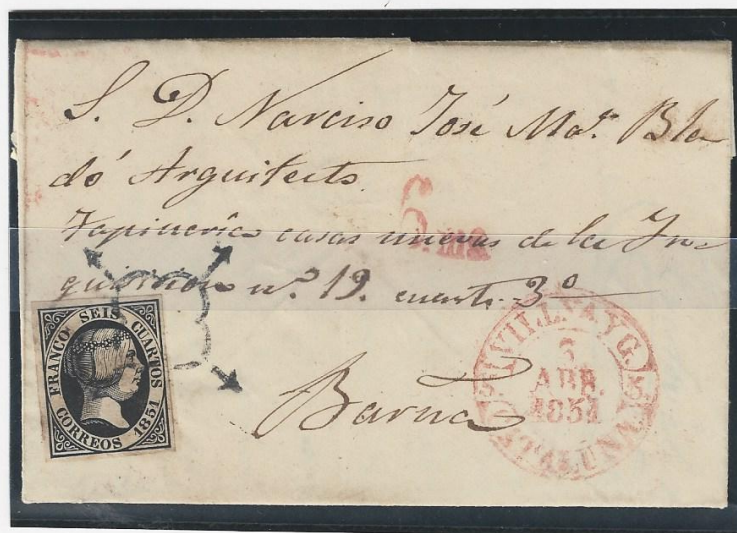 S. D. Narciso José Mª. Bla
dó Arquitecto.
Tapineria casas nuevas de la In
quisicion nº. 19. cuarto 3º
Barna
FRANCO SEIS CUARTOS
CORREOS 1851
VILLAN.A Y G.
3
ABR.
1851
CATALUÑA